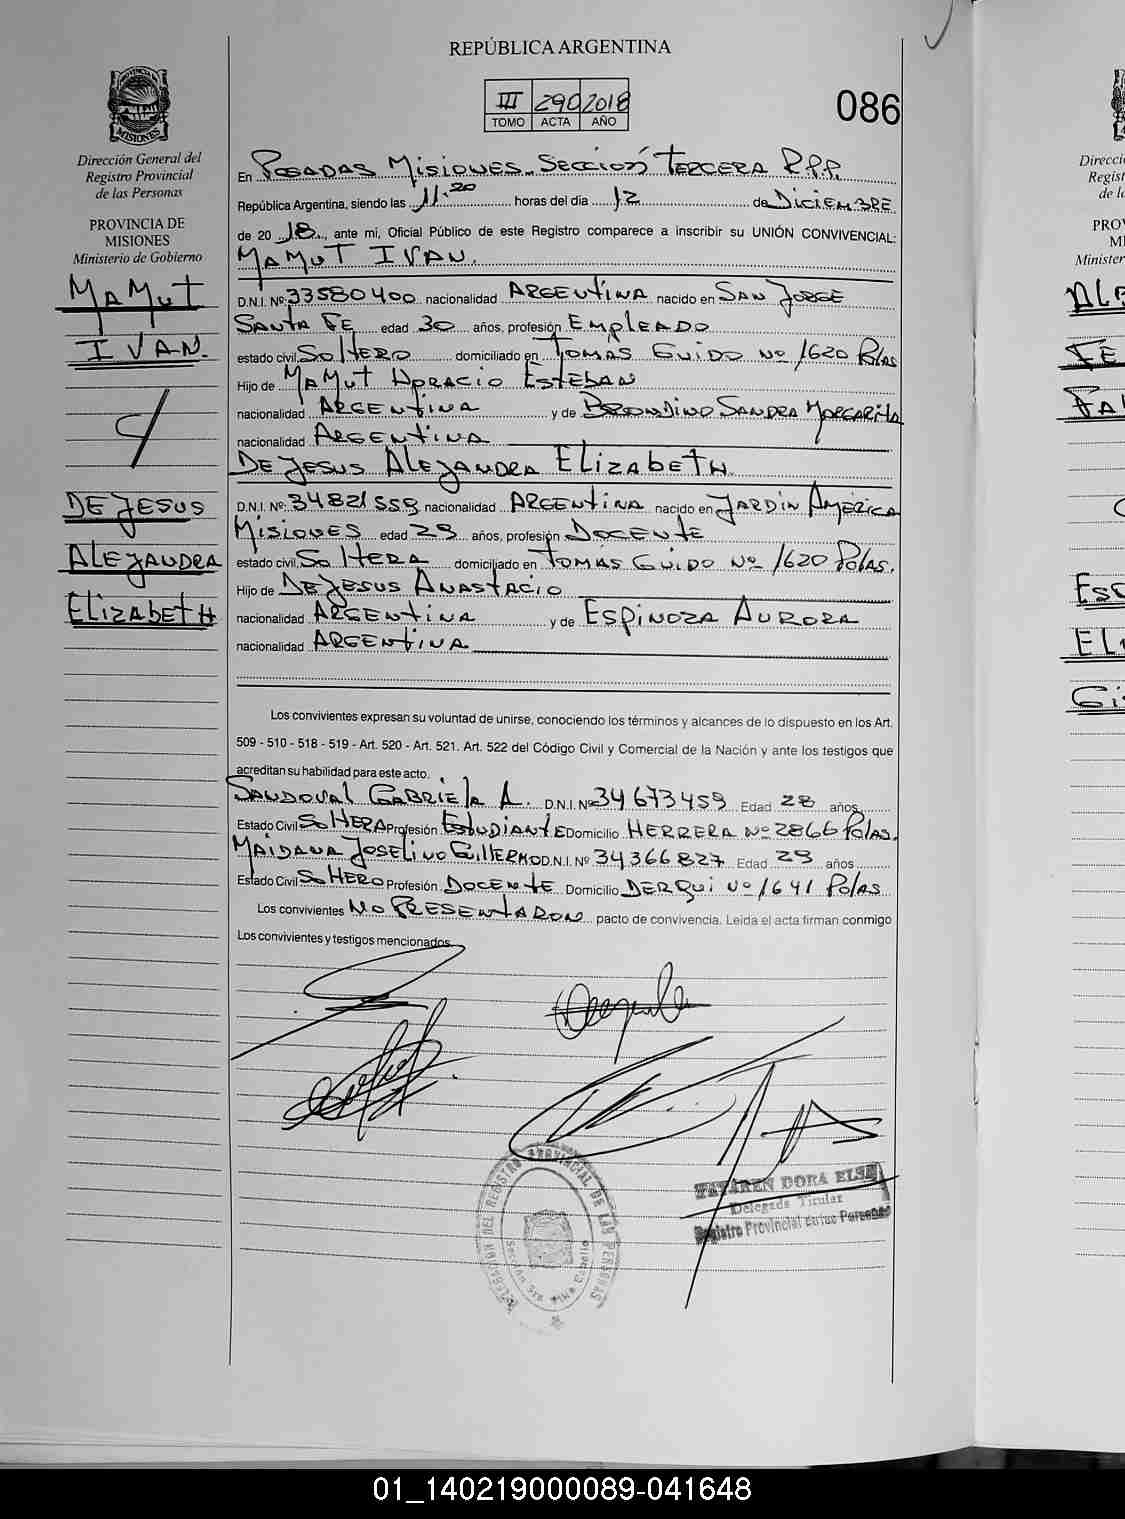 REPÚBLICA ARGENTINA
III 290 2018
TOMO ACTA AÑO
086
PROVINCIA DE MISIONES
Dirección General del
Registro Provincial
de las Personas
PROVINCIA DE
MISIONES
Ministerio de Gobierno
MAMUT
IVAN.
c/
DE JESUS
ALEJANDRA
ELIZABETH
En POSADAS MISIONES SECCION TERCERA R.P.P.
República Argentina, siendo las 11.20 horas del día 12 de DICIEMBRE
de 20 18, ante mi, Oficial Público de este Registro comparece a inscribir su UNIÓN CONVIVENCIAL:
MAMUT IVAN.
D.N.I. Nº: 33580400 nacionalidad ARGENTINA nacido en SAN JORGE
SANTA FE edad 30 años, profesión EMPLEADO
estado civil SOLTERO domiciliado en TOMAS GUIDO Nº 1620 Pdas
Hijo de MAMUT HORACIO ESTEBAN
nacionalidad ARGENTINA y de BRONDINO SANDRA MARGARITA
nacionalidad ARGENTINA
DE JESUS ALEJANDRA ELIZABETH
D.N.I. Nº: 34821559 nacionalidad ARGENTINA nacido en JARDIN AMERICA
MISIONES edad 29 años, profesión DOCENTE
estado civil SOLTERA domiciliado en TOMAS GUIDO Nº 1620 Pdas.
Hijo de DE JESUS ANASTACIO
nacionalidad ARGENTINA y de ESPINOZA AURORA
nacionalidad ARGENTINA
Los convivientes expresan su voluntad de unirse, conociendo los términos y alcances de lo dispuesto en los Art.
509 - 510 - 518 - 519 - Art. 520 - Art. 521. Art. 522 del Código Civil y Comercial de la Nación y ante los testigos que
acreditan su habilidad para este acto.
SANDOVAL GABRIELA A. D.N.I. Nº 34673459 Edad 28 años
Estado Civil SOLTERA Profesión ESTUDIANTE Domicilio HERRERA Nº 2866 Pdas.
MAIDANA JOSELINO GUILLERMO D.N.I. Nº 34366827 Edad 29 años
Estado Civil SOLTERO Profesión DOCENTE Domicilio DERQUI Nº 1641 Pdas
Los convivientes NO PRESENTARON pacto de convivencia. Leída el acta firman conmigo
Los convivientes y testigos mencionados.
DELEGACION DEL REGISTRO PROVINCIAL DE LAS PERSONAS
Sección 3ra
DORA ELSA
Delegada Titular
Registro Provincial de las Personas
01_140219000089-041648